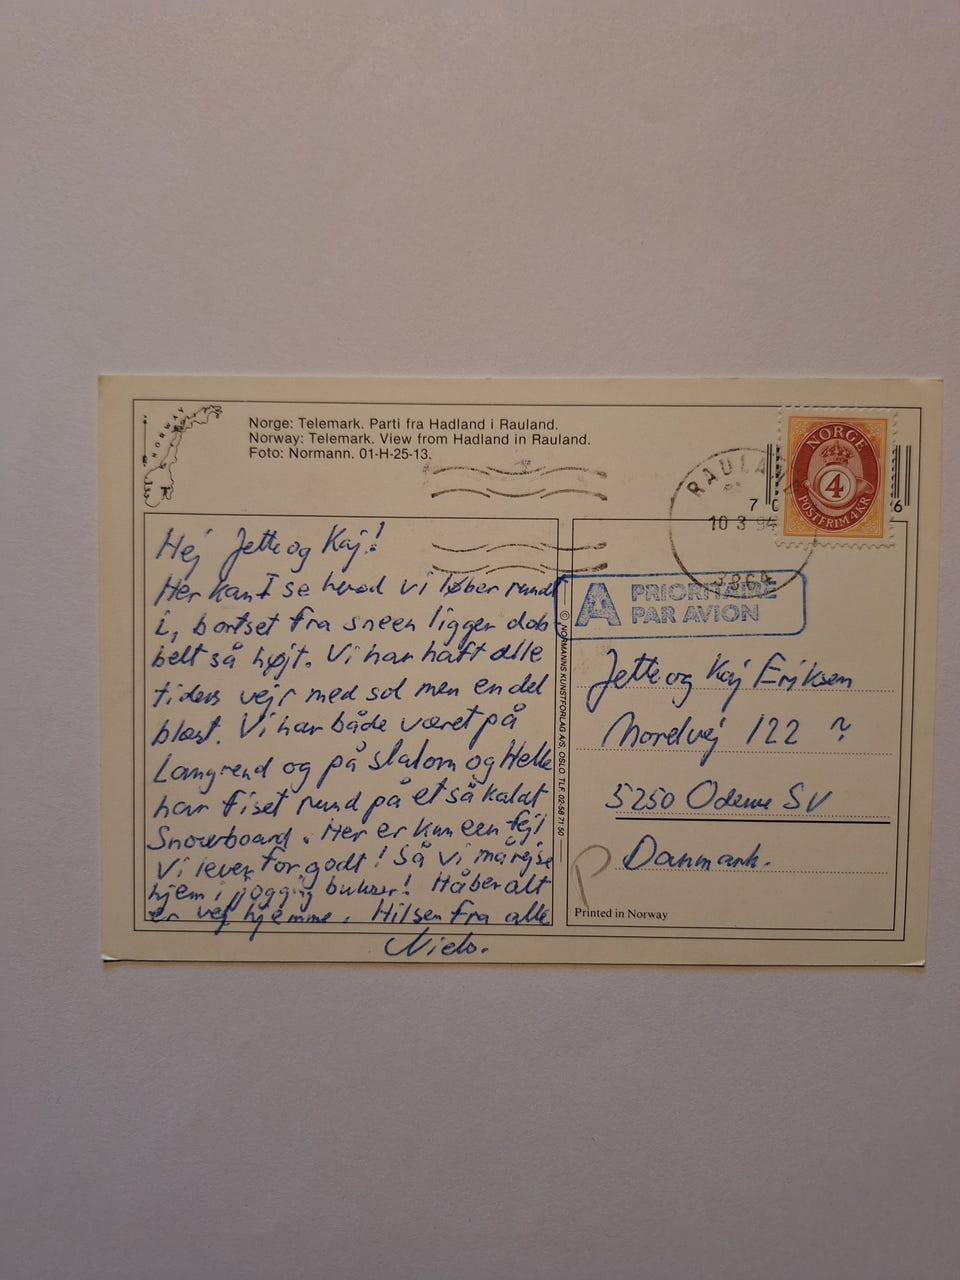 NORWAY
Norge: Telemark. Parti fra Hadland i Rauland.
Norway: Telemark. View from Hadland in Rauland.
Foto: Normann. 01-H-25-13.
NORGE
4
POSTFRIM 4 KR
RAULA
7 0
6
10 3 94
3864
A PRIORITAIRE
PAR AVION
Hej Jette og Kaj!
Her kan I se hvad vi løber rundt
i, bortset fra sneen ligger dob-
belt så højt. Vi har haft alle
tiders vejr med sol men en del
blæst. Vi har både været på
Langrend og på slalom og Helle
har fiset rund på et så kaldt
Snowboard. Her er kun een fejl
Vi lever for godt! Så vi må rejse
hjem i jogging bukser! Håber alt
er vel hjemme. Hilsen fra alle
Niels.
© NORMANNS KUNSTFORLAG A/S, OSLO TLF. 02-58 71 50
Jette og Kaj Eriksen
Nordvej 122 ?
5250 Odense SV
Danmark.
P
Printed in Norway